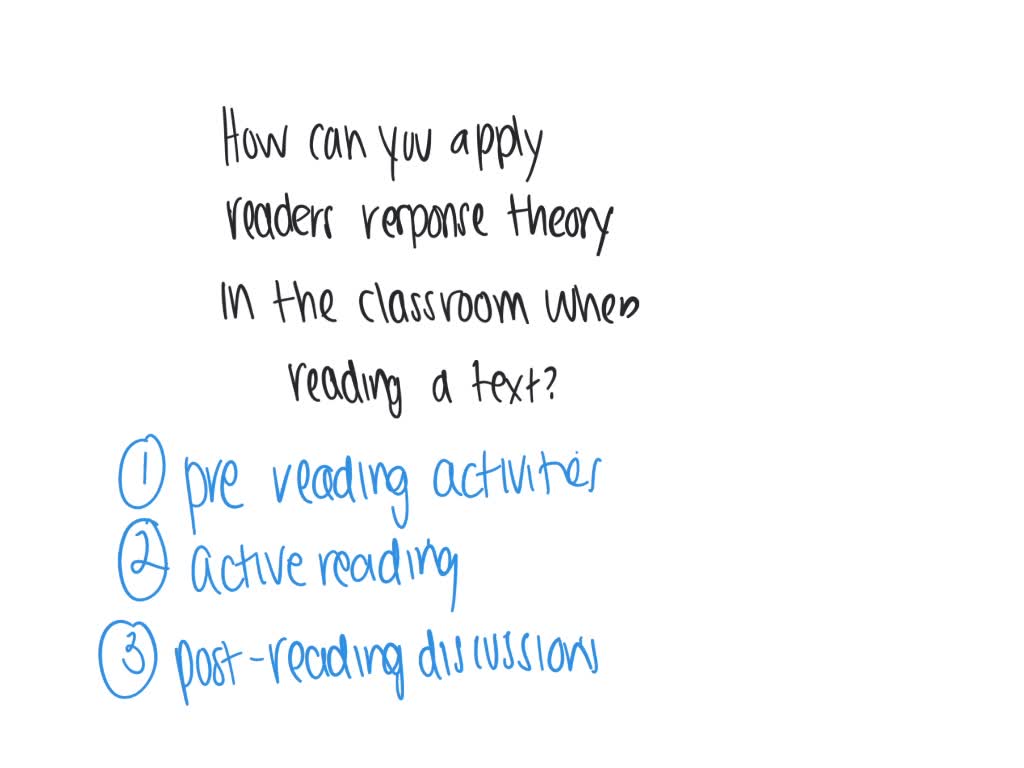 How can you apply
readers response theory
in the classroom when
reading a text?
1 pre reading activities
2 active reading
3 post-reading discussions